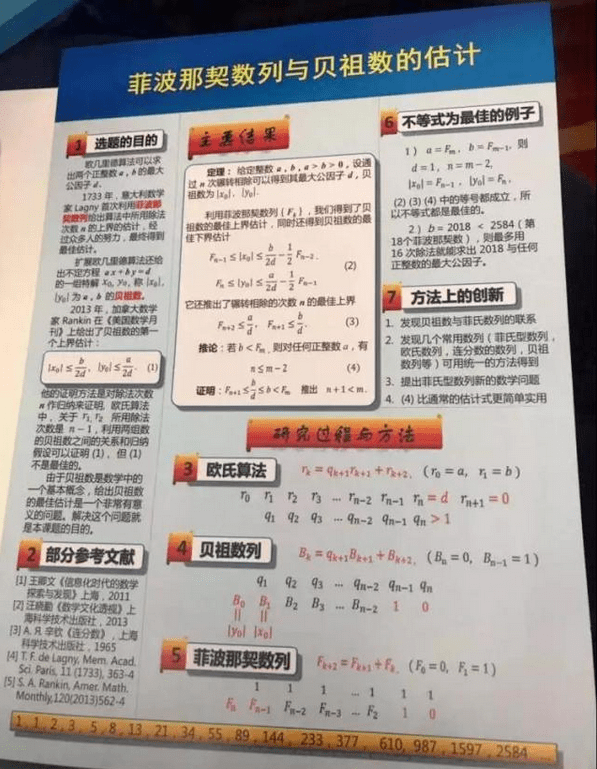 菲波那契数列与贝祖数的估计
1 选题的目的
欧几里德算法可以求
出两个正整数 a , b 的最大
公因子 d 。
1733 年,意大利数学
家 Lagny 首次利用菲波那
契数列给出算法中所用除法
次数 n 的上界的估计,经
过众多人的努力,最终得到
最佳估计。
扩展欧几里德算法还给
出不定方程 ax + by = d
的一组特解 x₀, y₀, 称 |x₀|,
|y₀| 为 a , b 的贝祖数。
2013 年,加拿大数学
家 Rankin 在《美国数学月
刊》上给出了贝祖数的第一
个上界估计:
|x₀| ≤ b/2d, |y₀| ≤ a/2d. (1)
他的证明方法是对除法次数
n 作归纳来证明, 欧氏算法
中,关于 r₁, r₂ 所用除法
次数是 n − 1 , 利用两组数
的贝祖数之间的关系和归纳
假设可以证明 (1) 、但 (1)
不是最佳的。
由于贝祖数是数学中的
一个基本概念,给出贝祖数
的最佳估计是一个非常有意
义的问题。解决这个问题就
是本课题的目的。
2 部分参考文献
[1] 王卿文《信息化时代的数学
探索与发现》上海,2011
[2] 汪晓勤《数学文化透视》上
海科学技术出版社,2013
[3] А. Я. 辛钦《连分数》,上海
科学技术出版社,1965
[4] T. F. de Lagny, Mem. Acad.
Sci. Paris, 11 (1733), 363-4
[5] S. A. Rankin, Amer. Math.
Monthly,120(2013)562-4
主要结果
定理: 给定整数 a , b , a > b > 0 , 设通
过 n 次辗转相除可以得到其最大公因子 d , 贝
祖数为 |x₀|, |y₀|.
利用菲波那契数列 {Fₖ} , 我们得到了贝
祖数的最佳上界估计,同时还得到贝祖数的最
佳下界估计
Fₙ₋₁ ≤ |x₀| ≤ b/2d − 1/2 Fₙ₋₂ .
(2)
Fₙ ≤ |y₀| ≤ a/2d − 1/2 Fₙ₋₁
它还推出了辗转相除的次数 n 的最佳上界
Fₙ₊₂ ≤ a/d, Fₙ₊₁ ≤ b/d. (3)
推论: 若 b < Fₘ , 则对任何正整数 a , 有
n ≤ m − 2 (4)
证明: Fₙ₊₁ ≤ b/d ≤ b < Fₘ 推出 n + 1 < m .
6 不等式为最佳的例子
1 ) a = Fₘ , b = Fₘ₋₁, 则
d = 1 , n = m − 2,
|x₀| = Fₙ₋₁ , |y₀| = Fₙ ,
(2) (3) (4) 中的等号都成立,所
以不等式都是最佳的。
2 ) b = 2018 < 2584 ( 第
18个菲波那契数 ) , 则最多用
16 次除法就能求出 2018 与任何
正整数的最大公因子。
7 方法上的创新
1. 发现贝祖数与菲氏数列的联系
2. 发现几个常用数列(菲氏型数列,
欧氏数列,连分数的数列,贝祖
数列等)可用统一的方法得到
3. 提出菲氏型数列新的数学问题
4. (4) 比通常的估计式更简单实用
研究过程与方法
3 欧氏算法 rₖ = qₖ₊₁rₖ₊₁ + rₖ₊₂, (r₀ = a, r₁ = b)
r₀ r₁ r₂ r₃ ... rₙ₋₂ rₙ₋₁ rₙ = d rₙ₊₁ = 0
q₁ q₂ q₃ ... qₙ₋₂ qₙ₋₁ qₙ > 1
4 贝祖数列 Bₖ = qₖ₊₁Bₖ₊₁ + Bₖ₊₂, (Bₙ = 0, Bₙ₋₁ = 1)
q₁ q₂ q₃ ... qₙ₋₂ qₙ₋₁ qₙ
B₀ B₁ B₂ B₃ ... Bₙ₋₂ 1 0
|| ||
|y₀| |x₀|
5 菲波那契数列 Fₖ₊₂ = Fₖ₊₁ + Fₖ, (F₀ = 0, F₁ = 1)
1 1 1 ... 1 1 1
Fₙ Fₙ₋₁ Fₙ₋₂ Fₙ₋₃ ... F₂ 1 0
1 , 1 , 2 , 3 , 5 , 8 , 13 , 21 , 34 , 55 , 89 , 144 , 233 , 377 , 610, 987 , 1597 , 2584 ...